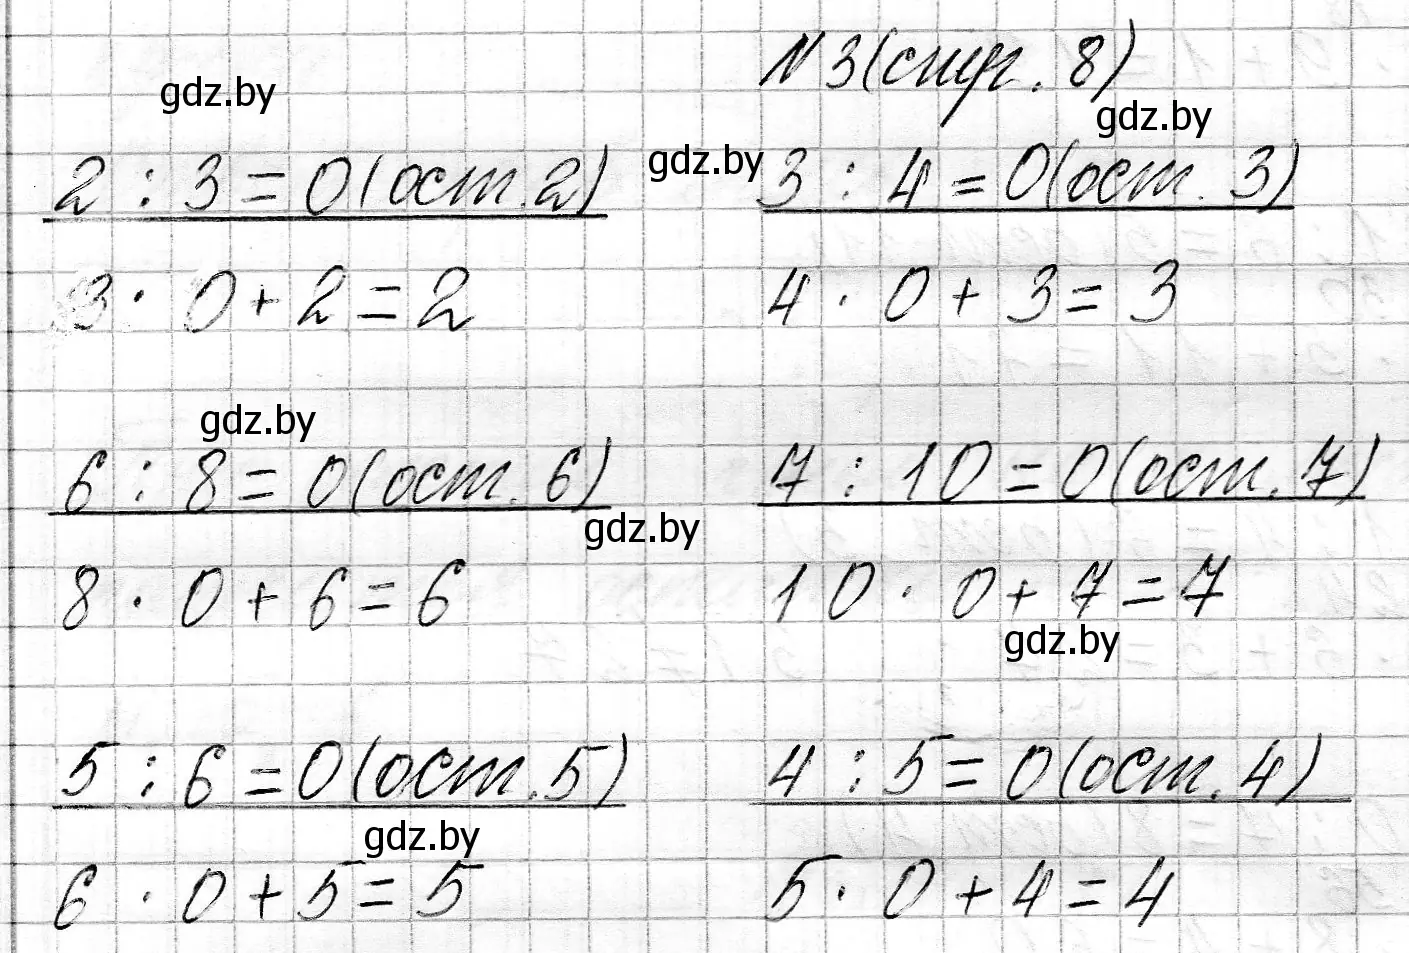 №3 (стр. 8)
gdz.by
gdz.by
gdz.by
2 : 3 = 0 (ост. 2) 3 : 4 = 0 (ост. 3)
3 · 0 + 2 = 2 4 · 0 + 3 = 3
gdz.by
6 : 8 = 0 (ост. 6) 7 : 10 = 0 (ост. 7)
gdz.by
8 · 0 + 6 = 6 10 · 0 + 7 = 7
gdz.by
5 : 6 = 0 (ост. 5) 4 : 5 = 0 (ост. 4)
gdz.by
6 · 0 + 5 = 5 5 · 0 + 4 = 4